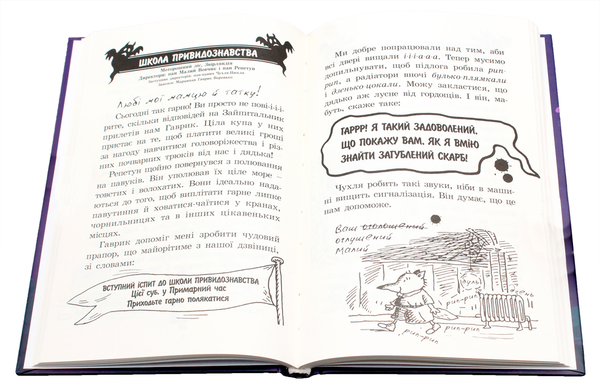 ШКОЛА ПРИВИДОЗНАВСТВА
Моторошний ліс, Звірляндія
Директори: пан Малий Вовчик і пан Репетун
Любі мої мамцю й татку!
Сьогодні так гарно! Ви просто не пові-і-і-і-
рите, скільки відповідей на Зайпитальник
прилетів нам Гаврик. Ціла купа у них
пристає на те, щоб платити великі гроші
за нагоду навчитися головорізництва і різ-
них почварних трюків від нас і дядька!
Репетун щойно повернувся з полювання
на павуків. Він уполював їх ціле море —
товстих і волохатих. Вони ідеально нада-
ються до того, щоб виплітати гарне липке
павутиння й ховатися-чаїтися у кранах,
чорнильницях та в інших цікавеньких
місцях.
Гаврик допоміг мені зробити чудовий
прапор, що майорітиме з нашої дзвіниці,
зі словами:
ВСТУПНИЙ ІСПИТ ДО ШКОЛИ ПРИВИДОЗНАВСТВА
Цієї суб. у Примарний час
Приходьте гарно полякатися
Ми добре попрацювали над тим, аби
всі двері вищали і-і-і-а-а-а. Тепер мусимо
допильнувати, щоб підлога робила рип-
рип, а радіатори вночі булько-плямкали
і дзенько-цокали. Можу закластися, що
дядько аж лусне від гордощів. І він, ма-
буть, скаже таке:
ГАРРР! Я ТАКИЙ ЗАДОВОЛЕНИЙ,
ЩО ПОКАЖУ ВАМ, ЯК Я ВМІЮ
ЗНАЙТИ ЗАГУБЛЕНИЙ СКАРБ!
Чухля робить такі звуки, ніби в маши-
ні вищить сигналізація. Він думає, що це
нам допоможе.
Ваш оголошений
оглушений
Малий
рип-рип
рип-рип
рип-рип